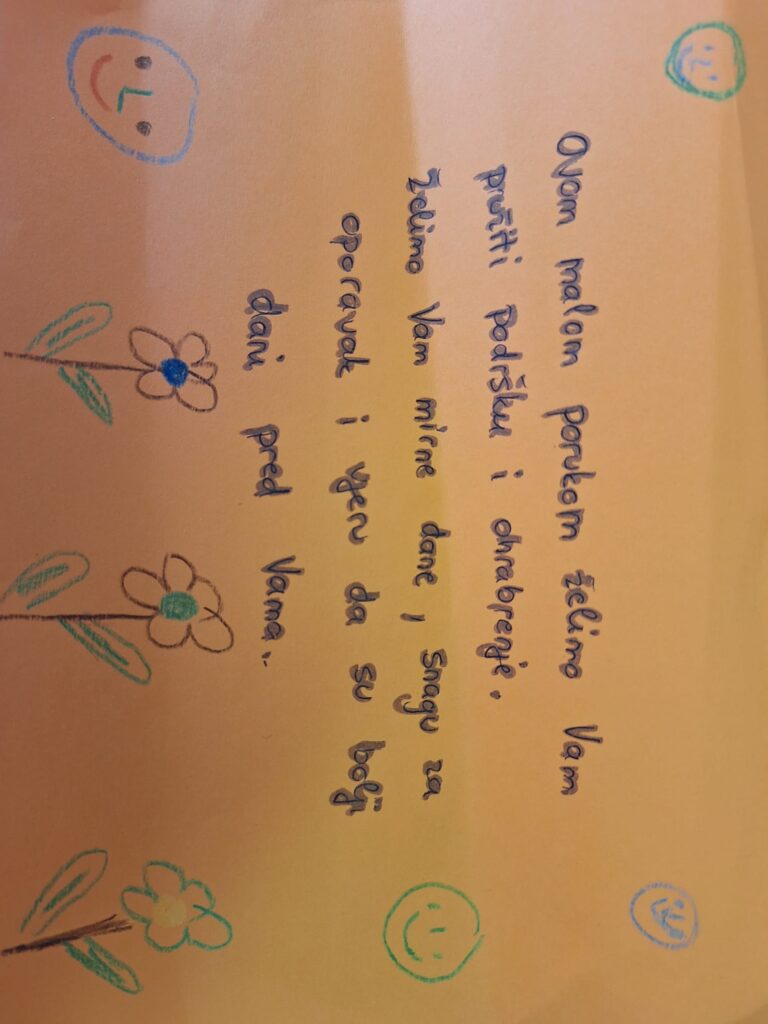 Ovom malom porukom želimo Vam
pružiti podršku i ohrabrenje.
Želimo Vam mirne dane, snagu za
oporavak i vjeru da su bolji
dani pred Vama..